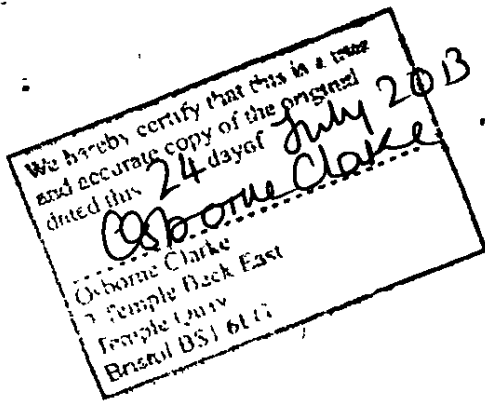 We hereby certify that this is a true
and accurate copy of the original
dated this 24 day of July 2013
Osborne Clarke
Osborne Clarke
2 Temple Back East
Temple Quay
Bristol BS1